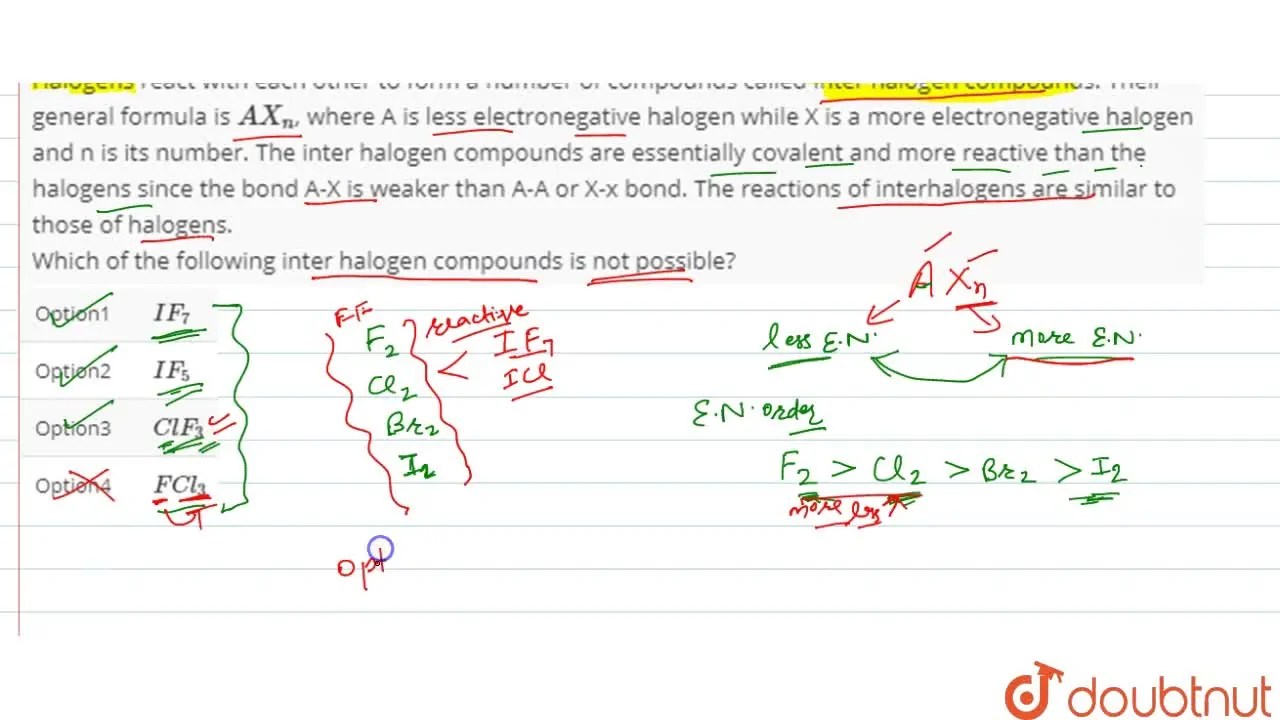 Halogens react with each other to form a number of compounds called inter halogen compounds. Their
general formula is AXₙ, where A is less electronegative halogen while X is a more electronegative halogen
and n is its number. The inter halogen compounds are essentially covalent and more reactive than the
halogens since the bond A-X is weaker than A-A or X-x bond. The reactions of interhalogens are similar to
those of halogens.
Which of the following inter halogen compounds is not possible?
Option1 IF₇
Option2 IF₅
Option3 ClF₃
Option4 FCl₃
F-F
F₂
Cl₂
Br₂
I₂
reactive
<
IF₇
ICl
A Xₙ
less E.N.
more E.N.
E.N. order
F₂ > Cl₂ > Br₂ > I₂
more less
opt
doubtnut